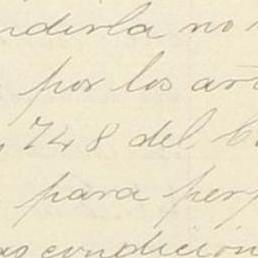 ndirla no
por los añ
748 del C
para perp
as condicion